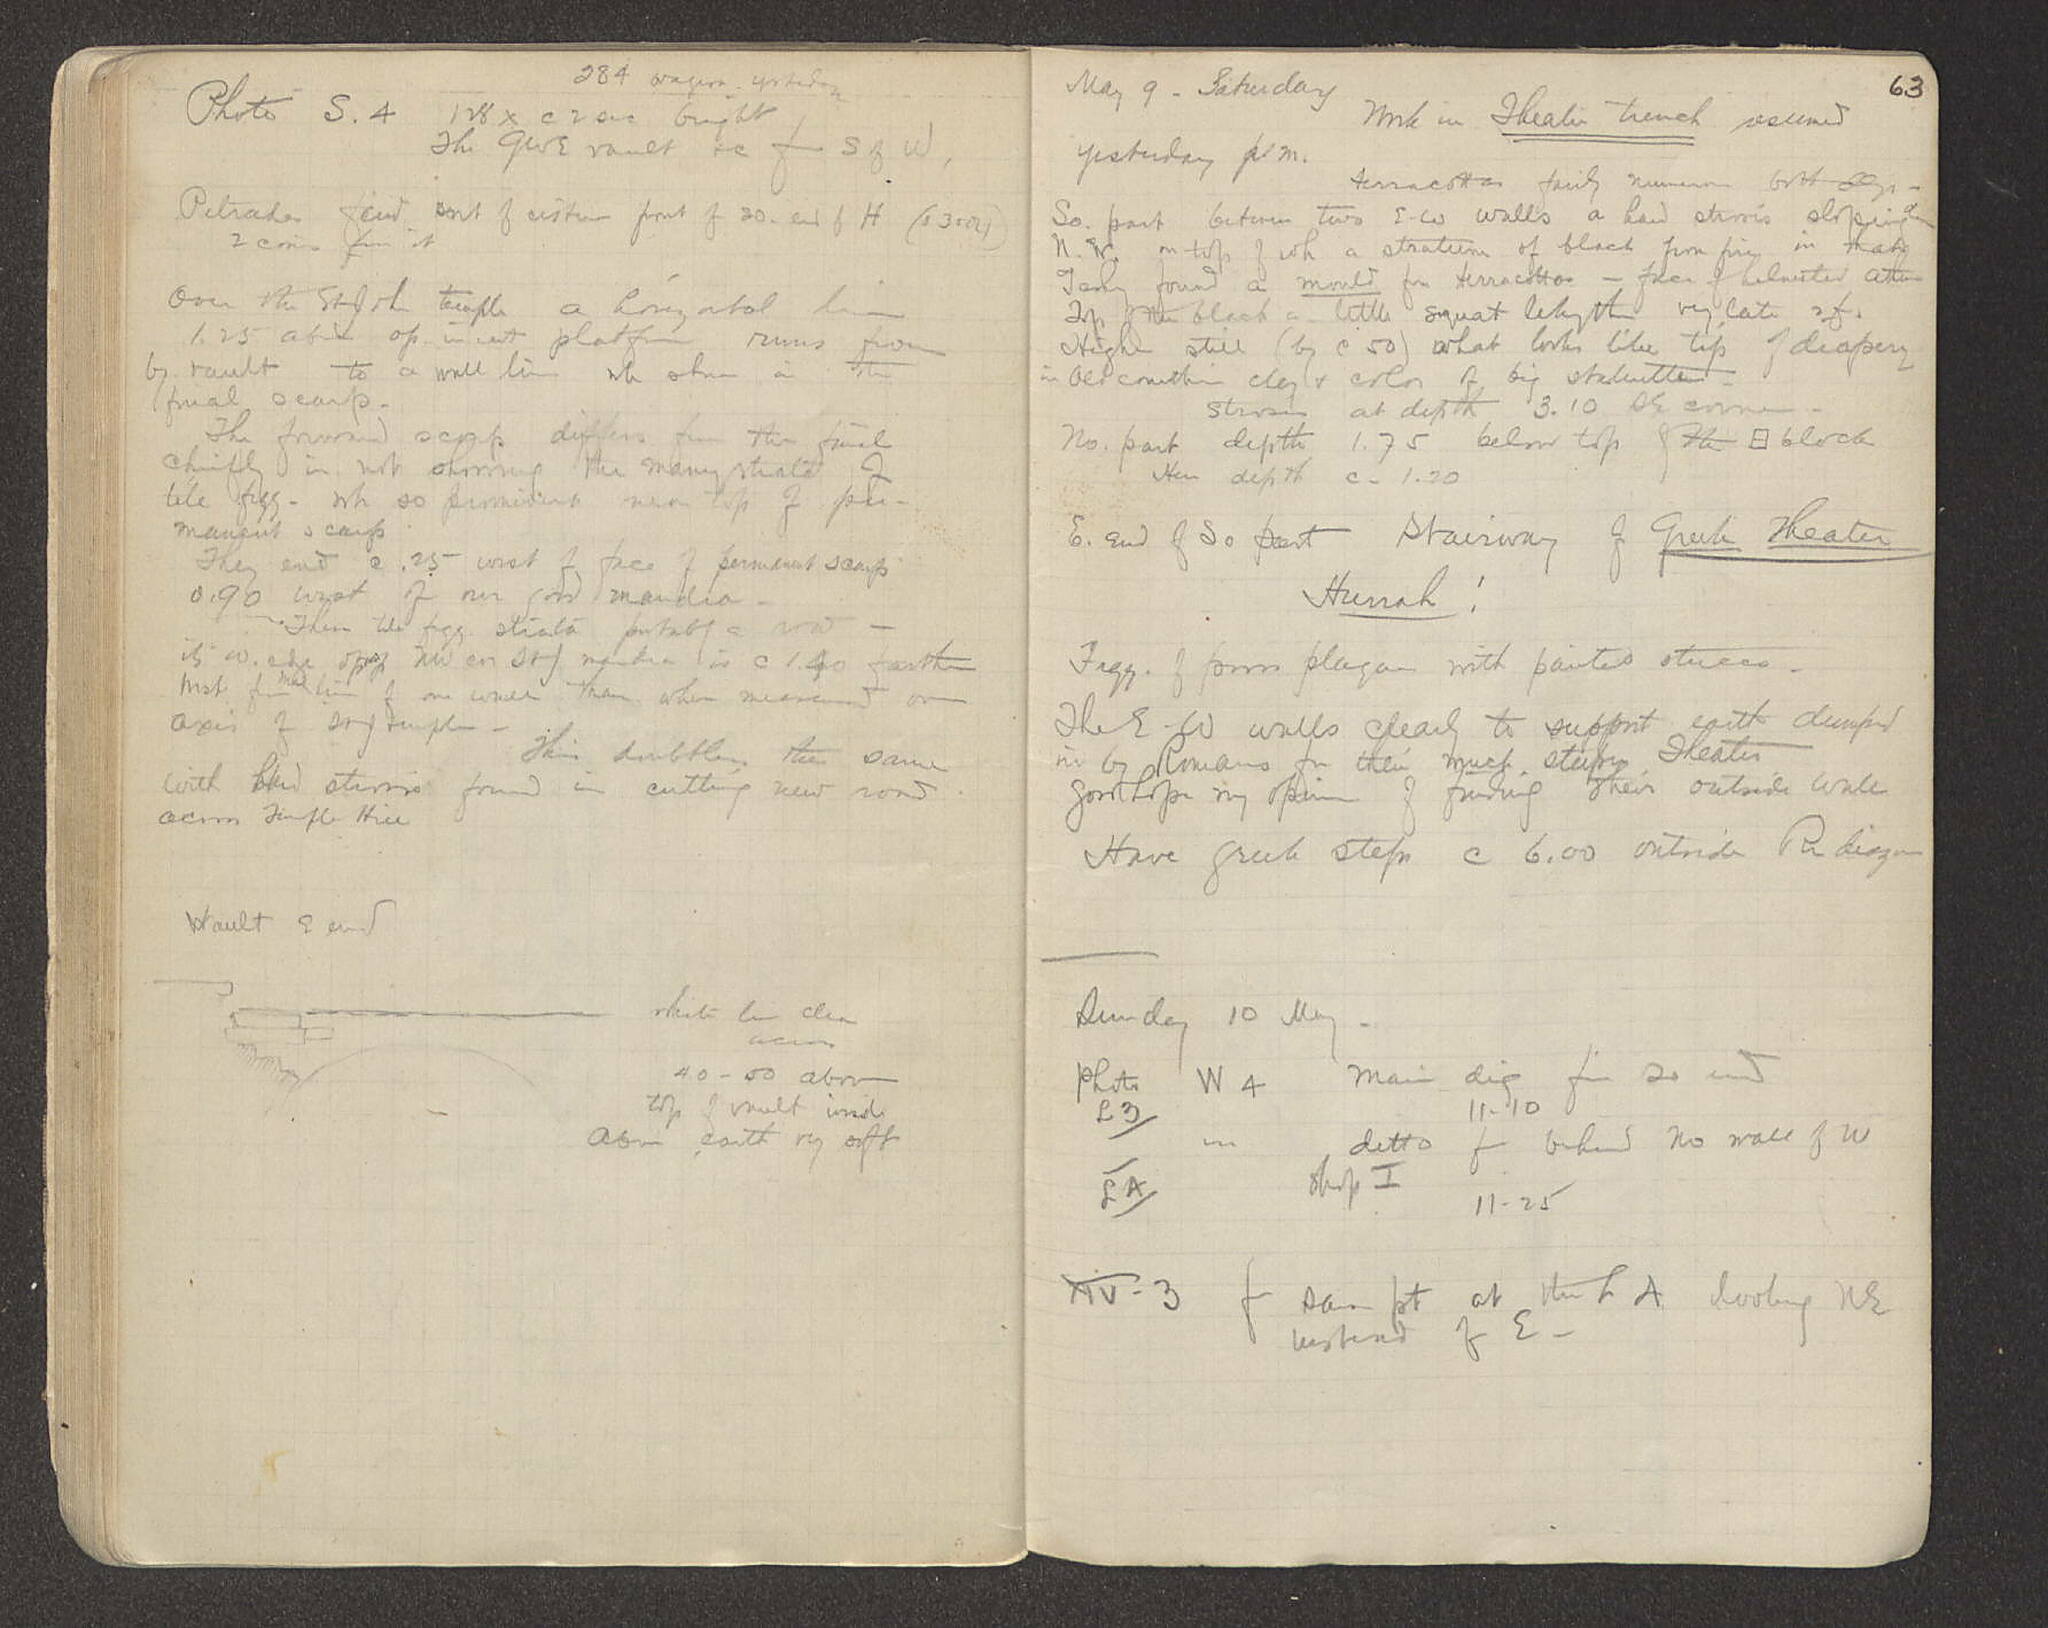 284 wagons yesterday
Photo S. 4 128 x c 2 sec bright
The GWE vault &c fm S of W,
Petrades find sort of cistern front of so. end of H
2 coins fm it
Over the St John temple a horizontal line
1.25 above op. in cut platform runs from
by vault to a wall line wh shows in the
final scarp.
The forward scarp differs fm the final
chiefly in not showing the many strata of
tile fgg. wh so prominent near top of per-
manent scarp.
They end c .25 west of face of permanent scarp
0.90 west of our good mandra -
These tile fgg. strata probably a road -
its w. edge opp. NW cor mandra is c 1.40 farther
west fm line of our when measured on
axis of temple -
This doubtless the same
with hard strosis found in cutting new road
across Temple Hill
Vault E end
white line clear
across
40-50 above
top of vault inside
Above earth very soft
63
May 9 - Saturday
Work in Theater trench resumed
yesterday p.m.
terracottas fairly numerous both days -
So. part between two E-W walls a hard strosis sloping dn
N.W. on top of wh a stratum of black from fire in that
found a mould for terracottas - face of helmeted Athena
Top the black a little squat lekythos very late r.f.
Higher still (by c 50) what looks like tip of drapery
in Old Corinthian clay & color of big statuette -
strosis at depth 3.10 SE corner -
No. part depth 1.75 below top of the block
Her depth c. 1.20
E. end of So part Stairway of Greek Theater
Hurrah!
Fragg. of poros with painted stucco -
The E-W walls clearly to support earth dumped
in by Romans for their much steeper Theater
good hope my opinion of finding their outside wall
Have greek steps c 6.00 outside Rn diazoma
Sunday 10 May -
Photo W 4 Main dig fm So end
L 3/ 11-10
" ditto fm behind No wall of W
L A/ Shop I
11-25
XIV-3 fm same pt at the L A looking NE
instead of E -